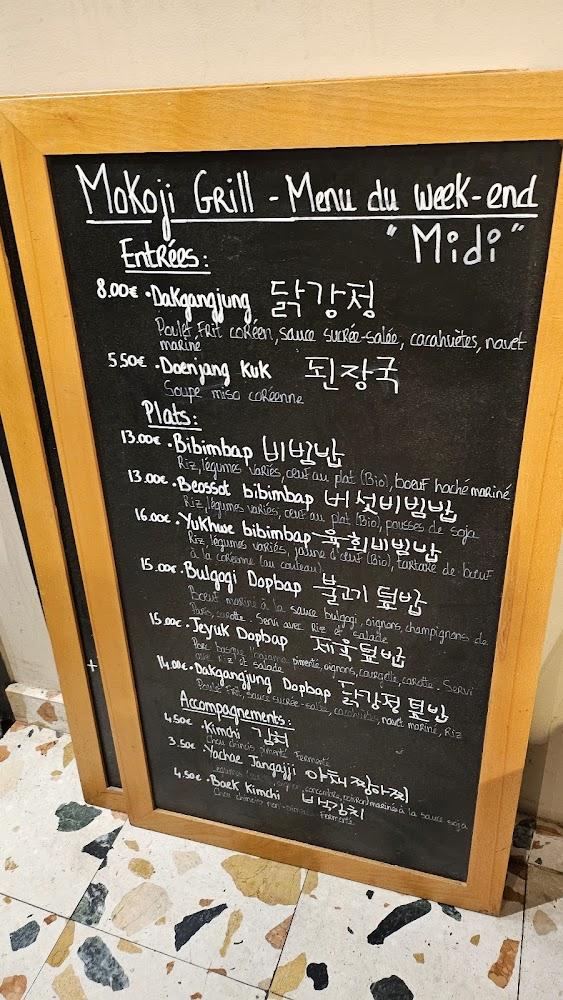 Mokoji Grill - Menu du week-end
"Midi"
Entrées:
8.00€ • Dakgangjung 닭강정
Poulet frit coréen, sauce sucrée-salée, cacahuètes, navet
mariné
5.50€ • Doenjang Kuk 된장국
Soupe miso coréenne
Plats:
13.00€ • Bibimbap 비빔밥
Riz, légumes variés, œuf au plat (Bio), bœuf haché mariné
13.00€ • Beossot bibimbap 버섯비빔밥
Riz, légumes variés, œuf au plat (Bio), pousses de soja
16.00€ • Yukhwe bibimbap 육회비빔밥
Riz, légumes variés, jaune d'œuf (Bio), tartare de bœuf
à la coréenne (au couteau)
15.00€ • Bulgogi Dopbap 불고기 덮밥
Bœuf mariné à la sauce bulgogi, oignons, champignons de
Paris, carotte. Servi avec Riz et salade
15.00€ • Jeyuk Dopbap 제육덮밥
Porc basque pimenté, oignons, courgette, carotte. Servi
avec Riz et salade
14.00€ • Dakgangjung Dopbap 닭강정 덮밥
Poulet frit, sauce sucrée-salée, cacahuètes, navet mariné, Riz
Accompagnements:
4.50€ • Kimchi 김치
Chou chinois pimenté fermenté
3.50€ • Yachae Jangajji 야채짱아찌
concombre, mariné à la sauce soja
4.50€ • Baek Kimchi 백김치
Chou chinois non-pimenté fermenté